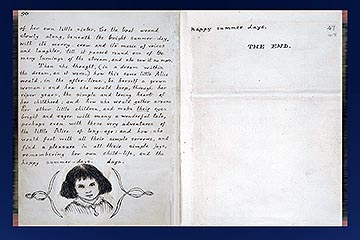 90
of her own little sister. So the boat wound
slowly along, beneath the bright summer-day,
with its merry crew and its music of voices
and laughter, till it passed round one of the
many turnings of the stream, and she saw it no more.
Then she thought, (in a dream within
the dream, as it were,) how this same little Alice
would, in the after-time, be herself a grown
woman: and how she would keep, through her
riper years, the simple and loving heart of
her childhood: and how she would gather around
her other little children, and make their eyes
bright and eager with many a wonderful tale,
perhaps even with these very adventures of
the little Alice of long-ago: and how she
would feel with all their simple sorrows, and
find a pleasure in all their simple joys,
remembering her own child-life, and the
happy summer days. days.
happy summer days.
THE END.